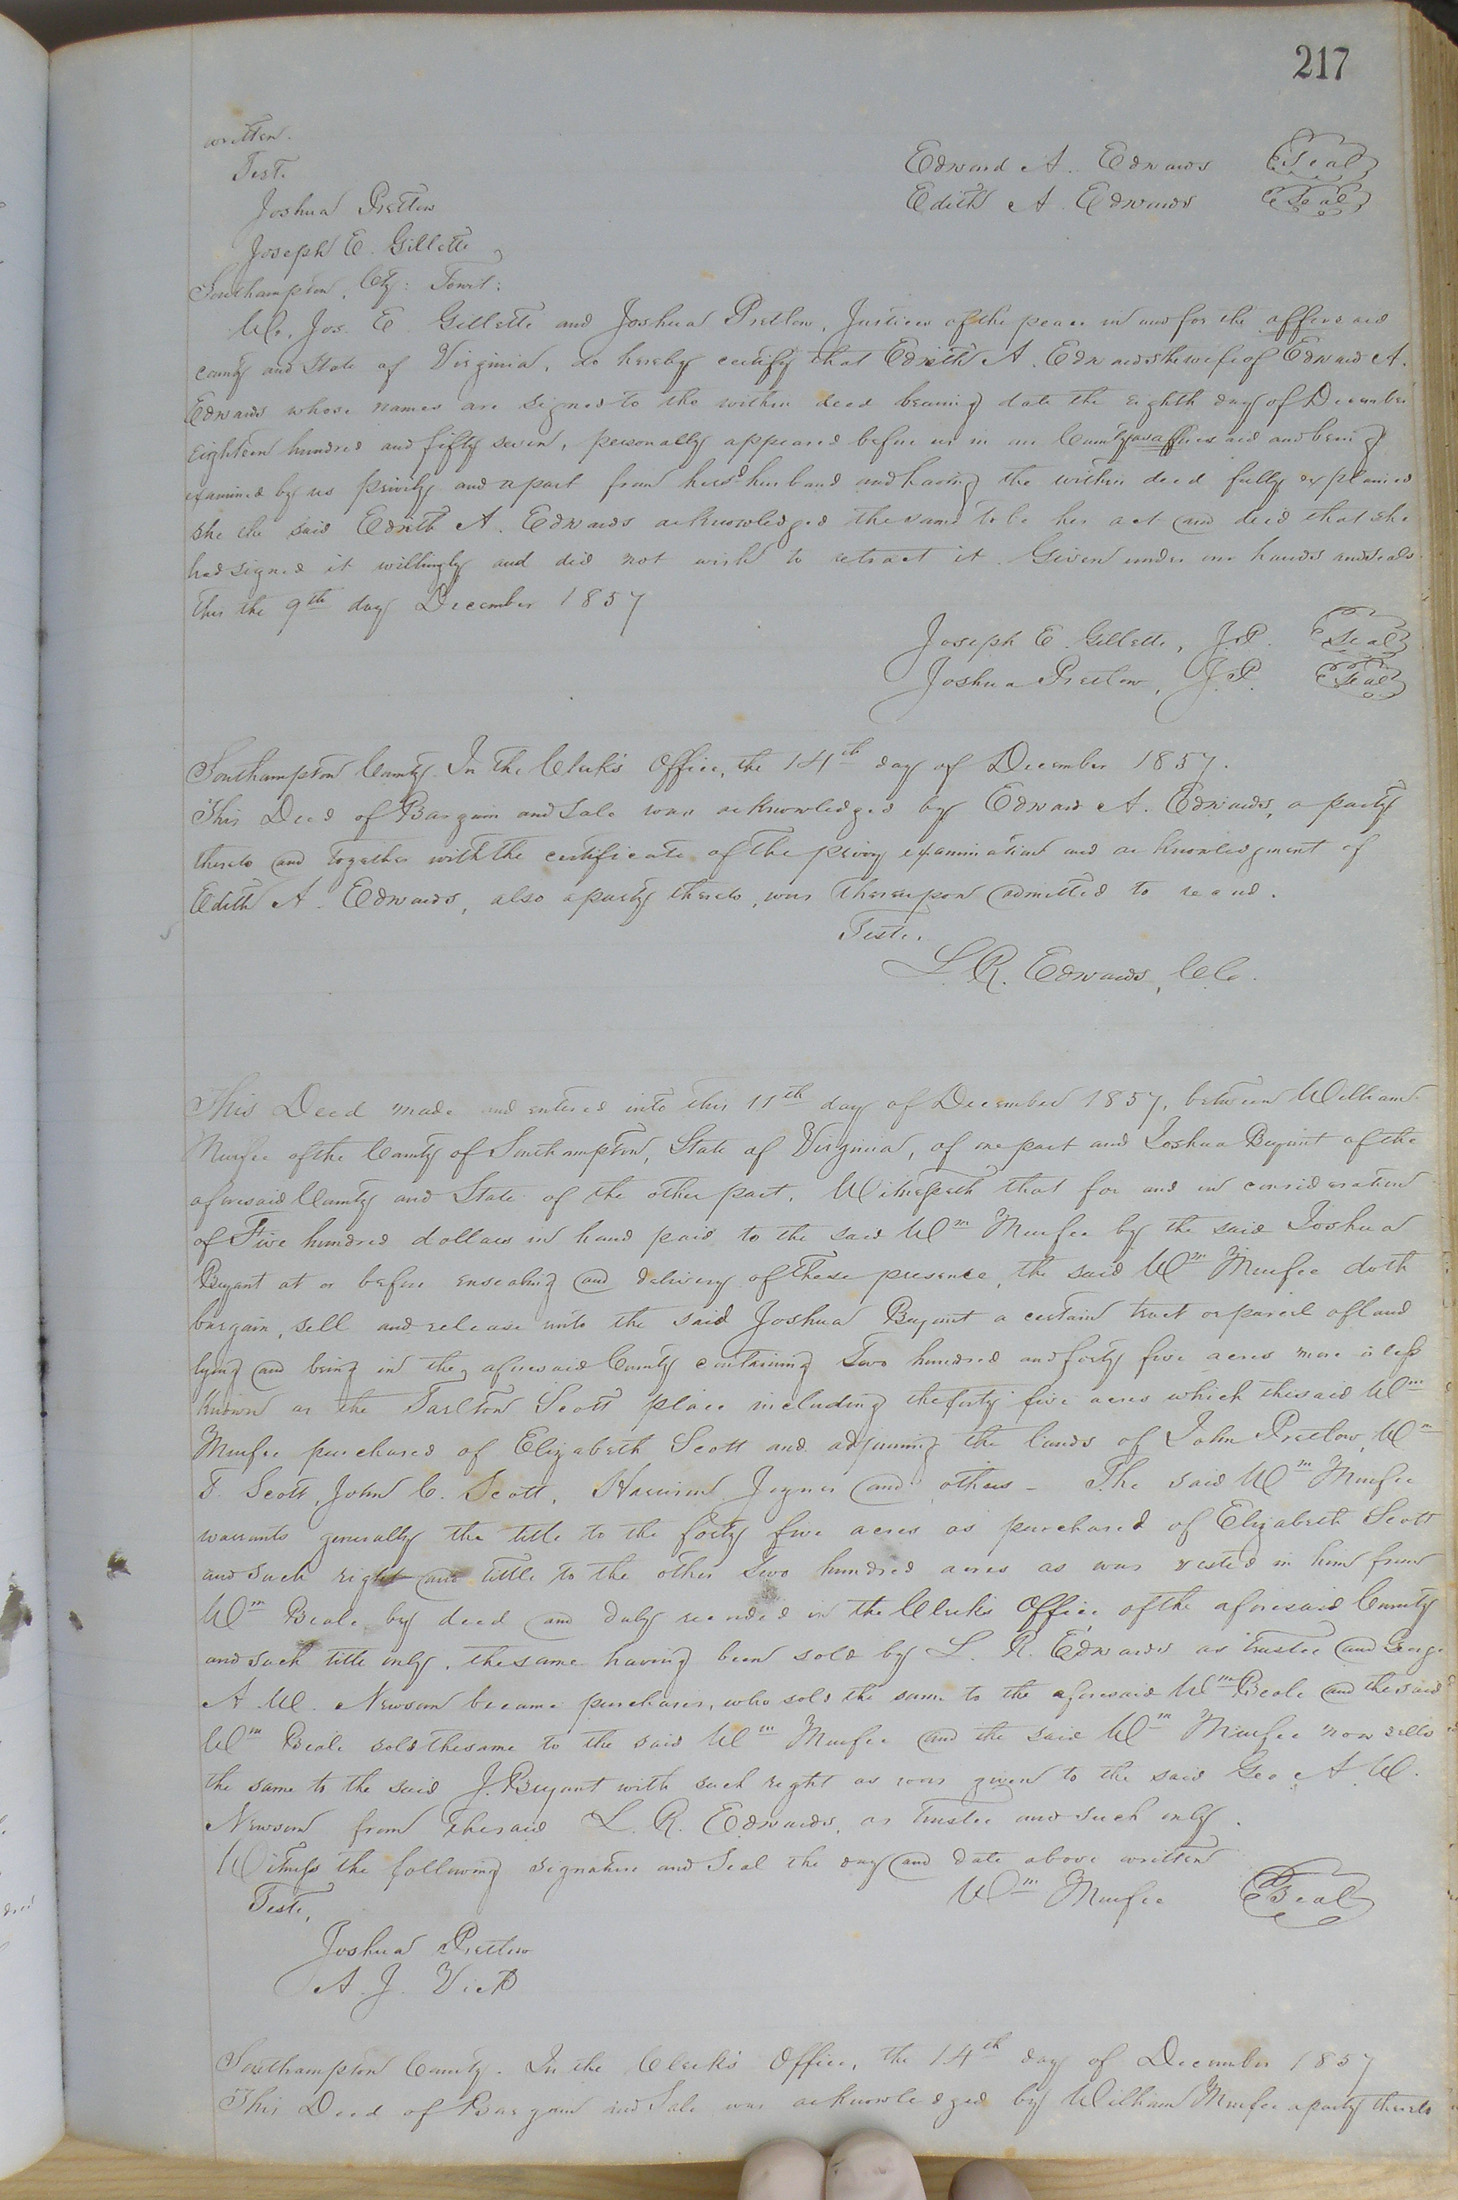 217
written.
Test.
Edward A. Edwards Seal
Joshua Pretlow
Edith A. Edwards Seal
Joseph E. Gillette
Southampton Cty: Towit:
We, Jos. E. Gillette and Joshua Pretlow, Justices of the peace in and for the afforesaid
county and State of Virginia, do hereby certify that Edith A. Edwards the wife of Edward A.
Edwards whose names are signed to the within deed bearing date the eighth day of December
eighteen hundred and fifty seven, personally appeared before us in our County as affore said and being
examined by us privily and apart from her sd husband and having the within deed fully explained
she the said Edith A. Edwards acknowledged the same to be her act and deed that she
had signed it willingly and did not wish to retract it. Given under our hands and seals
this the 9th day December 1857
Joseph E. Gillette, J.P. Seal
Joshua Pretlow, J.P. Seal
Southampton County. In the Clerk's Office, the 14th day of December 1857.
This Deed of Bargain and Sale was acknowledged by Edward A. Edwards, a party
thereto and together with the certificate of the privy examination and acknowledgment of
Edith A. Edwards, also a party thereto, was thereupon admitted to record.
Teste.
L. R. Edwards, C.C.
This Deed made and entered into this 11th day of December 1857, between William
Murfee of the County of Southampton, State of Virginia, of one part and Joshua Bryant of the
aforesaid County and State of the other part. Witnesseth that for and in consideration
of Five hundred dollars in hand paid to the said Wm Murfee by the said Joshua
Bryant at or before ensealing and delivery of these presence, the said Wm Murfee doth
bargain, sell and release unto the said Joshua Bryant a certain tract or parcel of land
lying and being in the aforesaid County containing Two hundred and forty five acres more or less
known as the Tarlton Scott place including the forty five acres which the said Wm
Murfee purchased of Elizabeth Scott and adjoining the lands of John Pretlow, Wm
T. Scott, John C. Scott, Harrison Joyner and others - The said Wm Murfee
warrants generally the title to the forty five acres as purchased of Elizabeth Scott
and such right and tittle to the other two hundred acres as was vested in him from
Wm Beale by deed and duly recorded in the Clerk's Office of the aforesaid County
and such title only, the same having been sold by L. R. Edwards as trustee and George
A. W. Newsom became purchaser, who sold the same to the aforesaid Wm Beale and the said
Wm Beale sold the same to the said Wm Murfee and the said Wm Murfee now sells
the same to the said J. Bryant with such right as was given to the said Geo. A. W.
Newsom from the said L. R. Edwards, as trustee and such only.
Witness the following signature and Seal the day and date above written
Teste,
Wm Murfee Seal
Joshua Pretlow
A. J. Vick
Southampton County. In the Clerk's Office, the 14th day of December 1857
This Deed of Bargain and Sale was acknowledged by William Murfee a party thereto